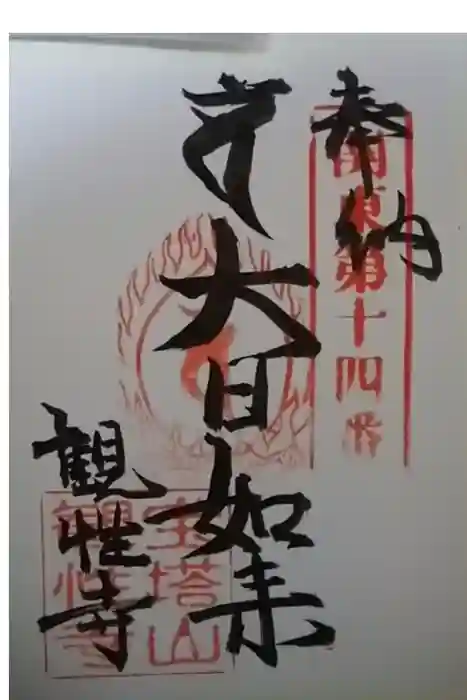 奉納
関東第十四番
大日如来
観性寺
宝塔山
観性寺